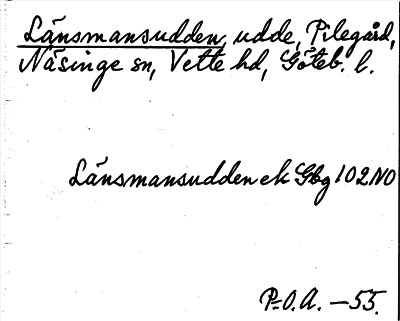 Länsmansudden, udde, Pilegård,
Näsinge sn, Vette hd, Göteb. l.
Länsmansudden ek Gbg 102 NO
P-O.A. -55.